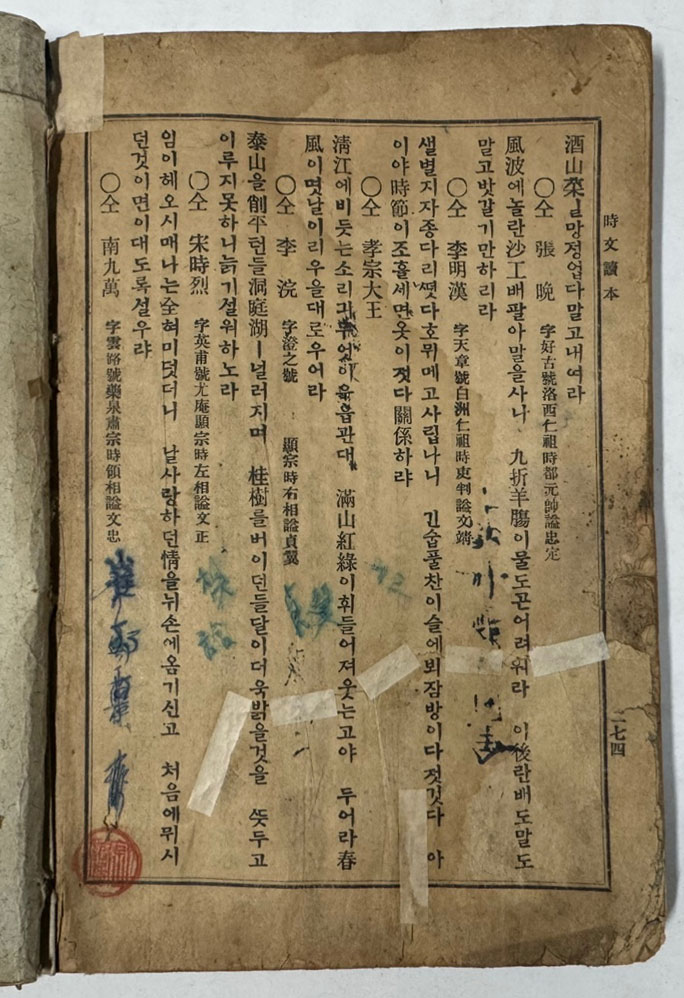 時文讀本
酒山菜ㅣ망정업다말고내여라
〇仝 張晩 字好古號洛西仁祖時都元帥諡忠定
風波에놀란沙工배팔아말을사니 九折羊膓이물도곤어려워라 이後란배도말도
말고밧갈기만하리라
〇仝 李明漢 字天章號白洲仁祖時吏判諡文靖
샐별지자종다리ᄯᅥᆺ다호뮈메고사립나니 긴숩풀찬이슬에뵈잠방이다젓깃다 아
이야時節이조흘세면옷이젓다關係하랴
〇仝 孝宗大王
淸江에비듯는소리긔무엇이 관대 滿山紅綠이휘들어져웃는고야 두어라春
風이몃날이리우을대로우어라
〇仝 李浣 字澄之號 顯宗時右相諡貞翼
泰山을削平턴들洞庭湖ㅣ널러지며 桂樹를버이던들달이더욱밝을것을 ᄯᅳᆺ두고
이루지못하니늙기설워하노라
〇仝 宋時烈 字英甫號尤庵顯宗時左相諡文正
임이헤오시매나는全혀미덧더니 날사랑하던情을뉘손에옴기신고 처음에뮈시
던것이면이대도록설우랴
〇仝 南九萬 字雲路號藥泉肅宗時領相諡文忠
一七四